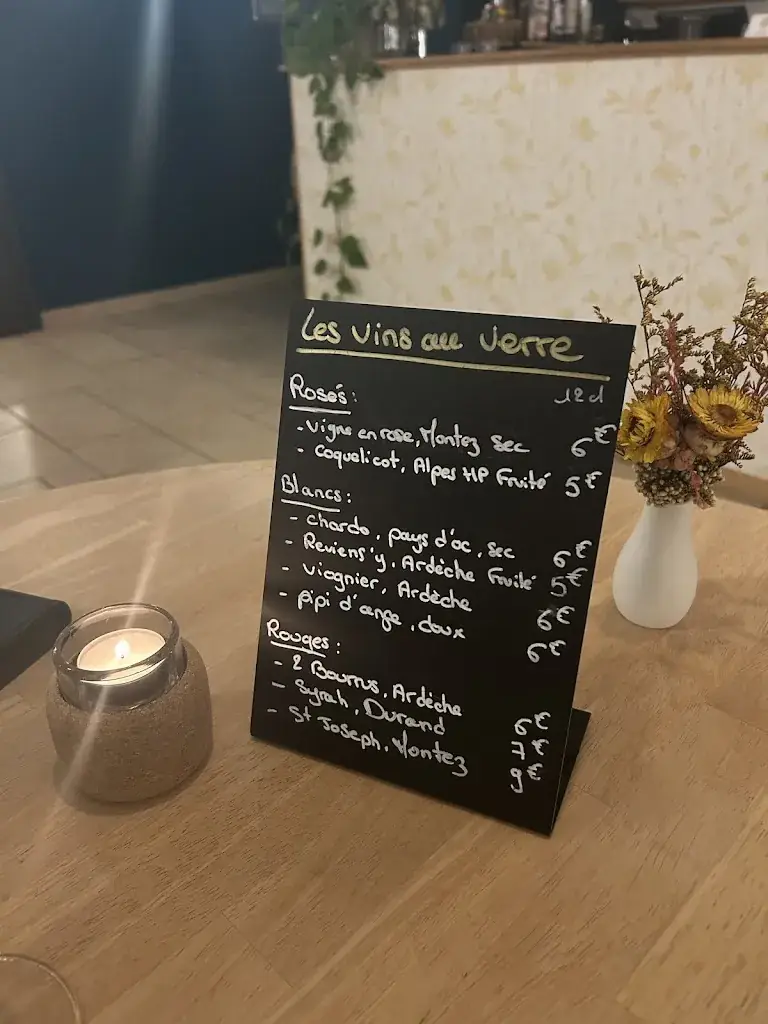 Les vins au verre
Rosés: 12cl
- Vigne en rose, Montez Sec 6€
- Coquelicot, Alpes HP Fruité 5€
Blancs:
- Chardo, pays d'oc, sec 6€
- Reviens'y, Ardèche Fruité 5€
- Viognier, Ardèche 6€
- Pipi d'ange, doux 6€
Rouges:
- 2 Bourrus, Ardèche 6€
- Syrah, Durand 7€
- St Joseph, Montez 9€